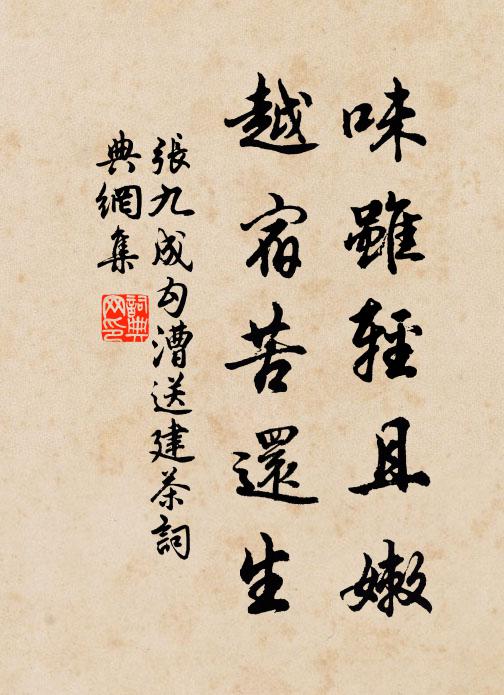 味雖輕且嫩
越宿苦還生
張九成勾漕送建茶詞
典網集
詞典网印